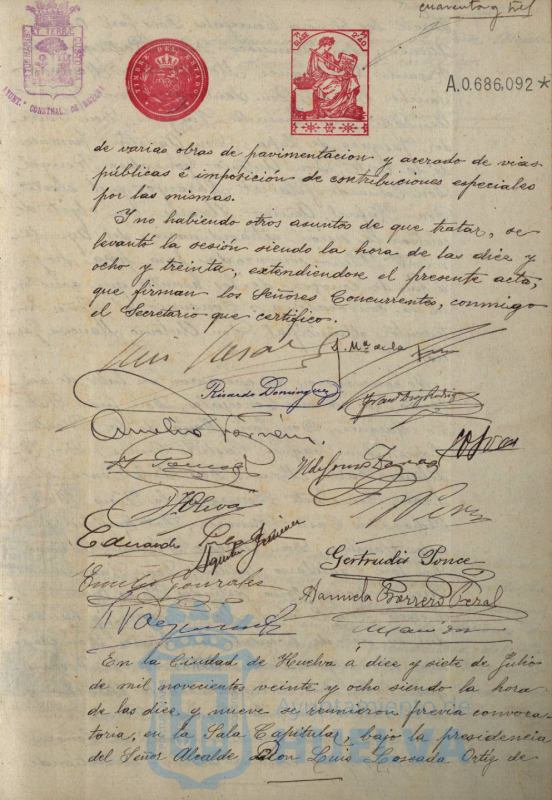 cuarenta y tres
TIMBRE DEL ESTADO
A.0.686,092*
de varias obras de pavimentacion y acerado de vias
públicas é imposición de contribuciones especiales
por las mismas.
Y no habiendo otros asuntos de que tratar, se
levantó la sesión siendo la hora de las diez y
ocho y treinta, extendiendose el presente acta,
que firman los Señores Concurrentes, conmigo
el Secretario que certifico.
J. Mª de la
Ricardo Dominguez
Aurelio
Ildefonso
Oliva
Eduardo
Agustin Jimenez
Gertrudis Ponce
Emilio Gonzales
Manuela Borrero Peral
En la Ciudad de Huelva á diez y siete de Julio
de mil novecientos veinte y ocho siendo la hora
de las diez y nueve se reunieron previa convoca-
toria, en la Sala Capitular, bajo la presidencia
del Señor Alcalde Don Luis Loscada Ortiz de
Ayuntamiento de
HUELVA